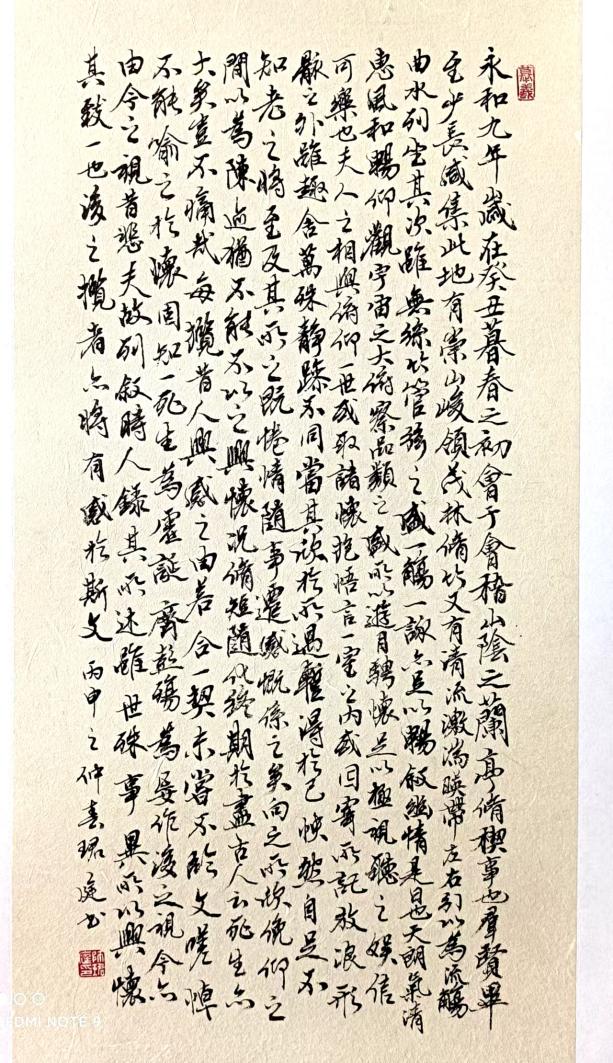 永和九年歲在癸丑暮春之初會于會稽山陰之蘭亭脩禊事也羣賢畢
至少長咸集此地有崇山峻領茂林脩竹又有清流激湍暎帶左右引以為流觴
曲水列坐其次雖無絲竹管弦之盛一觴一詠亦足以暢敘幽情是日也天朗氣清
惠風和暢仰觀宇宙之大俯察品類之盛所以遊目騁懷足以極視聽之娛信
可樂也夫人之相與俯仰一世或取諸懷抱悟言一室之內或因寄所託放浪形
骸之外雖趣舍萬殊靜躁不同當其欣於所遇暫得於己怏然自足不
知老之將至及其所之既惓情隨事遷感慨係之矣向之所欣俛仰之
間以為陳迹猶不能不以之興懷況脩短隨化終期於盡古人云死生亦
大矣豈不痛哉每攬昔人興感之由若合一契未嘗不臨文嗟悼
不能喻之於懷固知一死生為虛誕齊彭殤為妄作後之視今亦
由今之視昔悲夫故列敘時人錄其所述雖世殊事異所以興懷
其致一也後之攬者亦將有感於斯文 丙申之仲春珺庭書
EDMI NOTE 9